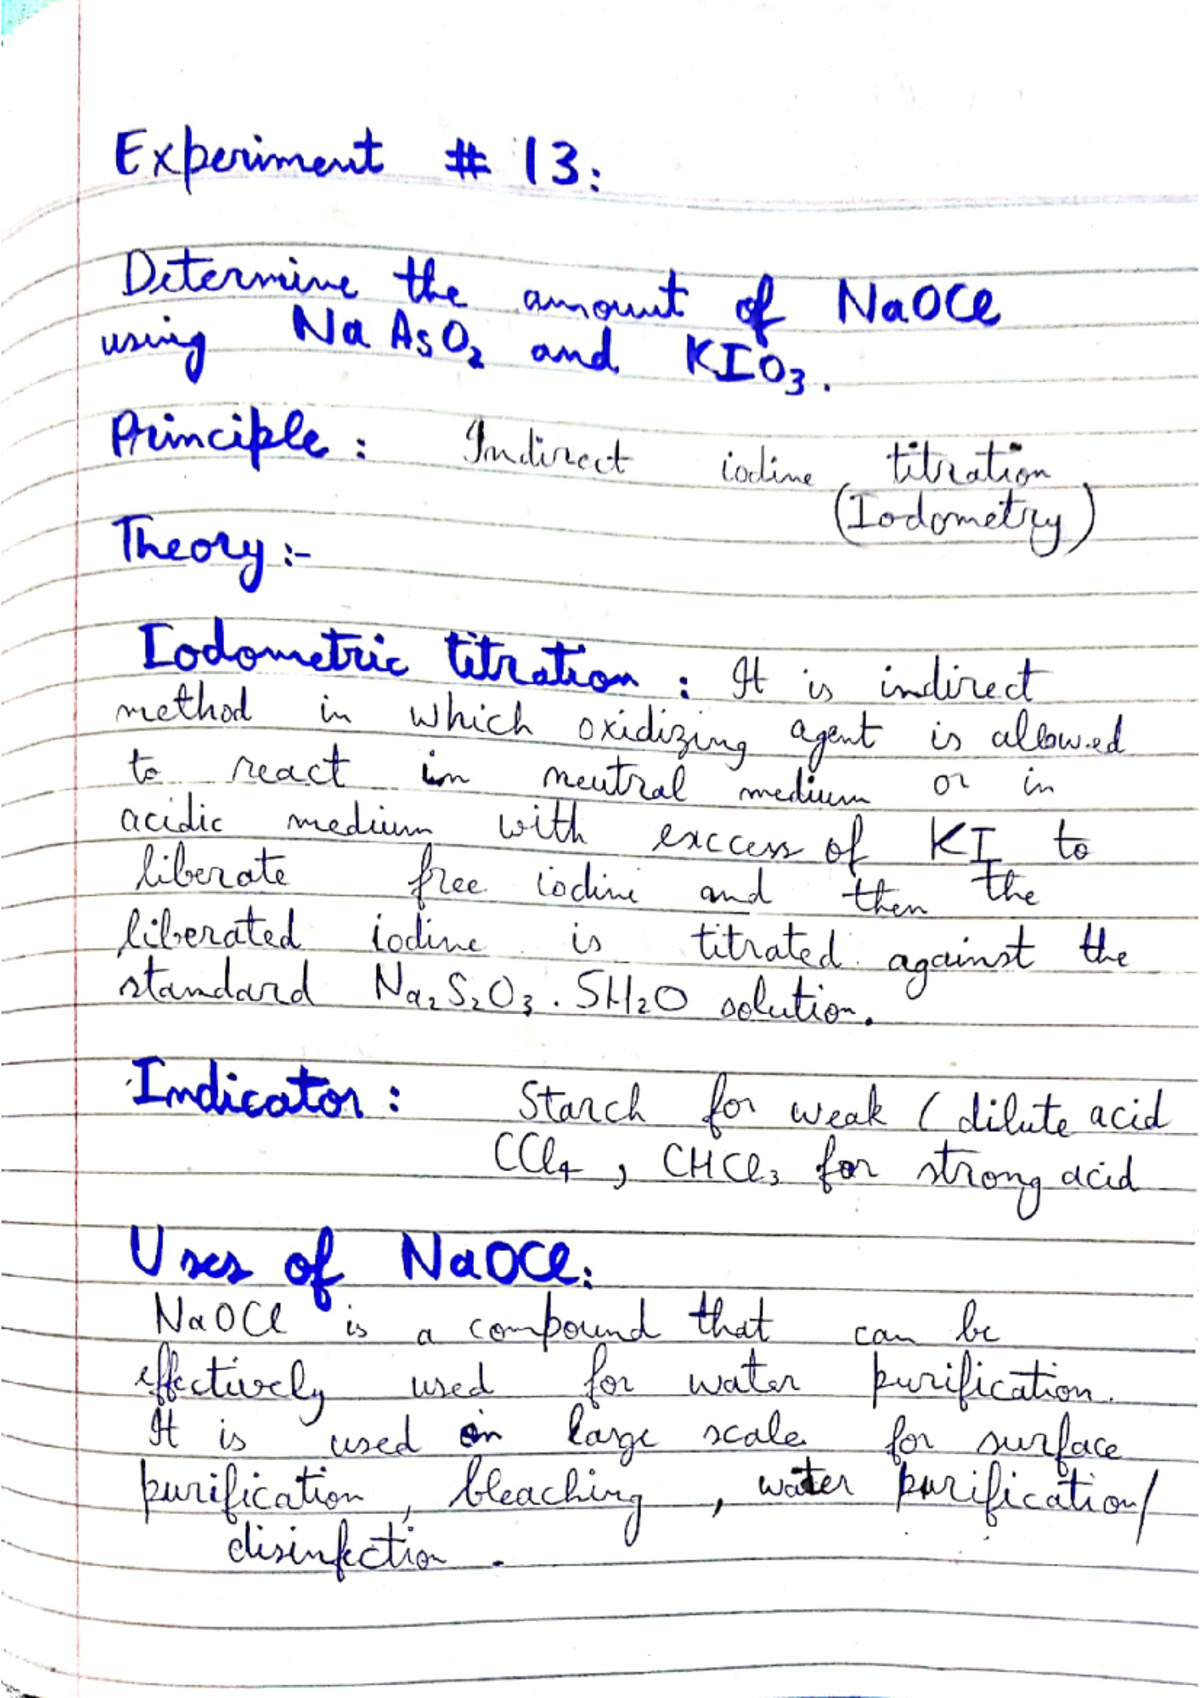 Experiment # 13:
Determine the amount of NaOCl
using NaAsO₂ and KIO₃.
Principle: Indirect iodine titration
(Iodometry)
Theory:-
Iodometric titration: It is indirect
method in which oxidizing agent is allowed
to react in neutral medium or in
acidic medium with exccess of KI to
liberate free iodine and then the
liberated iodine is titrated against the
standard Na₂S₂O₃.5H₂O solution.
Indicator: Starch for weak (dilute acid
CCl₄, CHCl₃ for strong acid
Uses of NaOCl:
NaOCl is a compound that can be
effectively used for water purification.
It is used on large scale for surface
purification, bleaching, water purification/
disinfection.